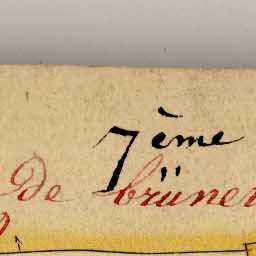 7ème
De brüner